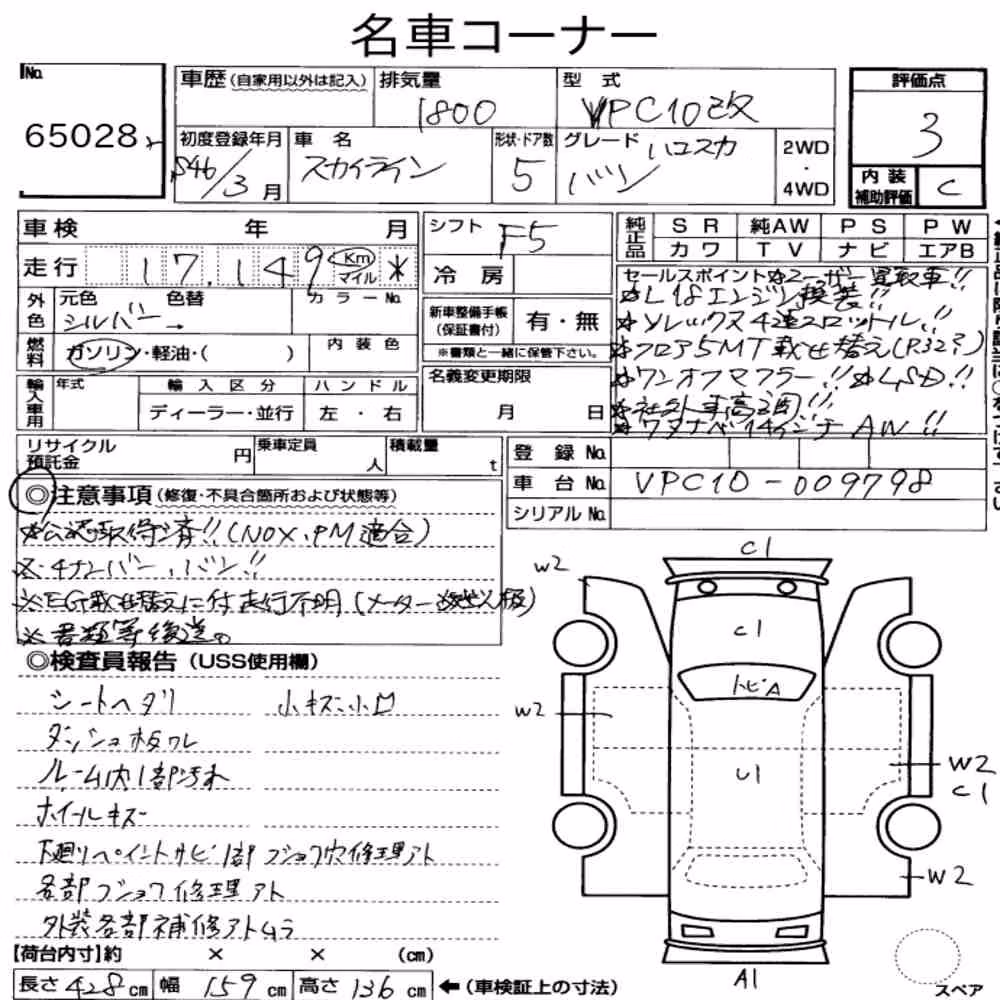 名車コーナー
No.
65028
車歴(自家用以外は記入)
排気量
1800
型 式
VPC10改
評価点
3
初度登録年月
S46/3月
車 名
スカイライン
形状・ドア数
5
グレード
ハコスカ
バン
2WD
・
4WD
内装
補助評価
C
車検 年 月
走行 17,149 Km マイル *
シフト
F5
冷房
純正品
SR 純AW PS PW
カワ TV ナビ エアB
外色
元色 色替
シルバー →
カラーNo.
燃料
ガソリン・軽油・( )
内装色
新車整備手帳
(保証書付)
有・無
※書類と一緒に保管下さい。
セールスポイント ☆ユーザー買取車!!
☆L18エンジン換装!!
☆ソレックス4連スロットル!!
☆フロア5MT載せ替え(R32?)
☆ワンオフマフラー!! ☆LSD!!
☆社外車高調!!
☆ワタナベ14インチAW!!
輸入車用
年式
輸入区分
ディーラー・並行
ハンドル
左・右
名義変更期限
月 日
リサイクル
預託金
円
乗車定員
人
積載量
t
登録No.
車台No.
VPC10-009798
シリアルNo.
◎注意事項(修復・不具合箇所および状態等)
☆公認取得済!!(NOX、PM適合)
※・4ナンバー、バン!!
※EG載せ替えに付走行不明(メーター改ざん扱)
※書類等後送。
◎検査員報告(USS使用欄)
シートヘタリ 小キズ、小凹
ダッシュ板ワレ
ルーム内1部汚れ
ホイールキズ
下廻りペイントサビ1部フショク穴修理アト
各部フショク修理アト
外装各部補修アトムラ
C1
W2
C1
トビA
W2
U1
W2
C1
W2
A1
スペア
【荷台内寸】約 × × (cm)
長さ428cm 幅159cm 高さ136cm ←(車検証上の寸法)